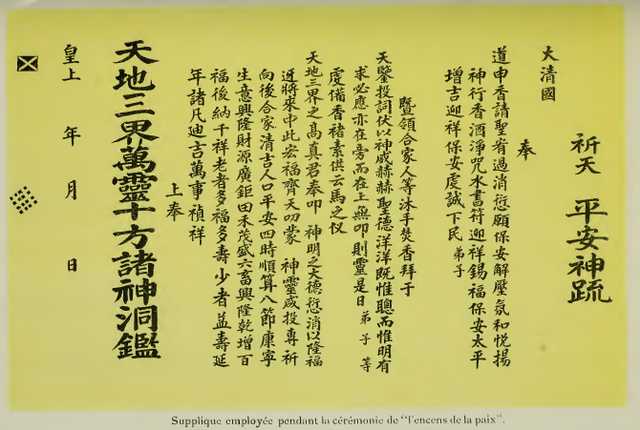 祈天 平安神疏
大清國
奉
道申香請聖宥過消愆願保安解壓氛和悅揚
神行香酒淨咒水書符迎祥錫福保安太平
增吉迎祥保安虔誠下民 弟子
暨領合家人等沐手焚香拜于
天鑒投詞伏以神威赫赫聖德洋洋既惟聰而惟明有
求必應亦在旁而在上無叩則靈是日 弟子 等
虔備香褚素供云馬之仪
天地三界之高真君奉叩 神明之大德愆消以隆福
迓將來中此宏福齊天叨蒙 神靈咸投專祈
向後合家清吉人口平安四時順算八節康寧
生意興隆財源廣鉅田禾茂盛六畜興隆乾增百
福後納千祥老者多福多壽少者益壽延
年諸凡迪吉萬事禎祥
上奉
天地三界萬靈十方諸神洞鑑
皇上 年 月 日
Supplique employée pendant la cérémonie de "l'encens de la paix".